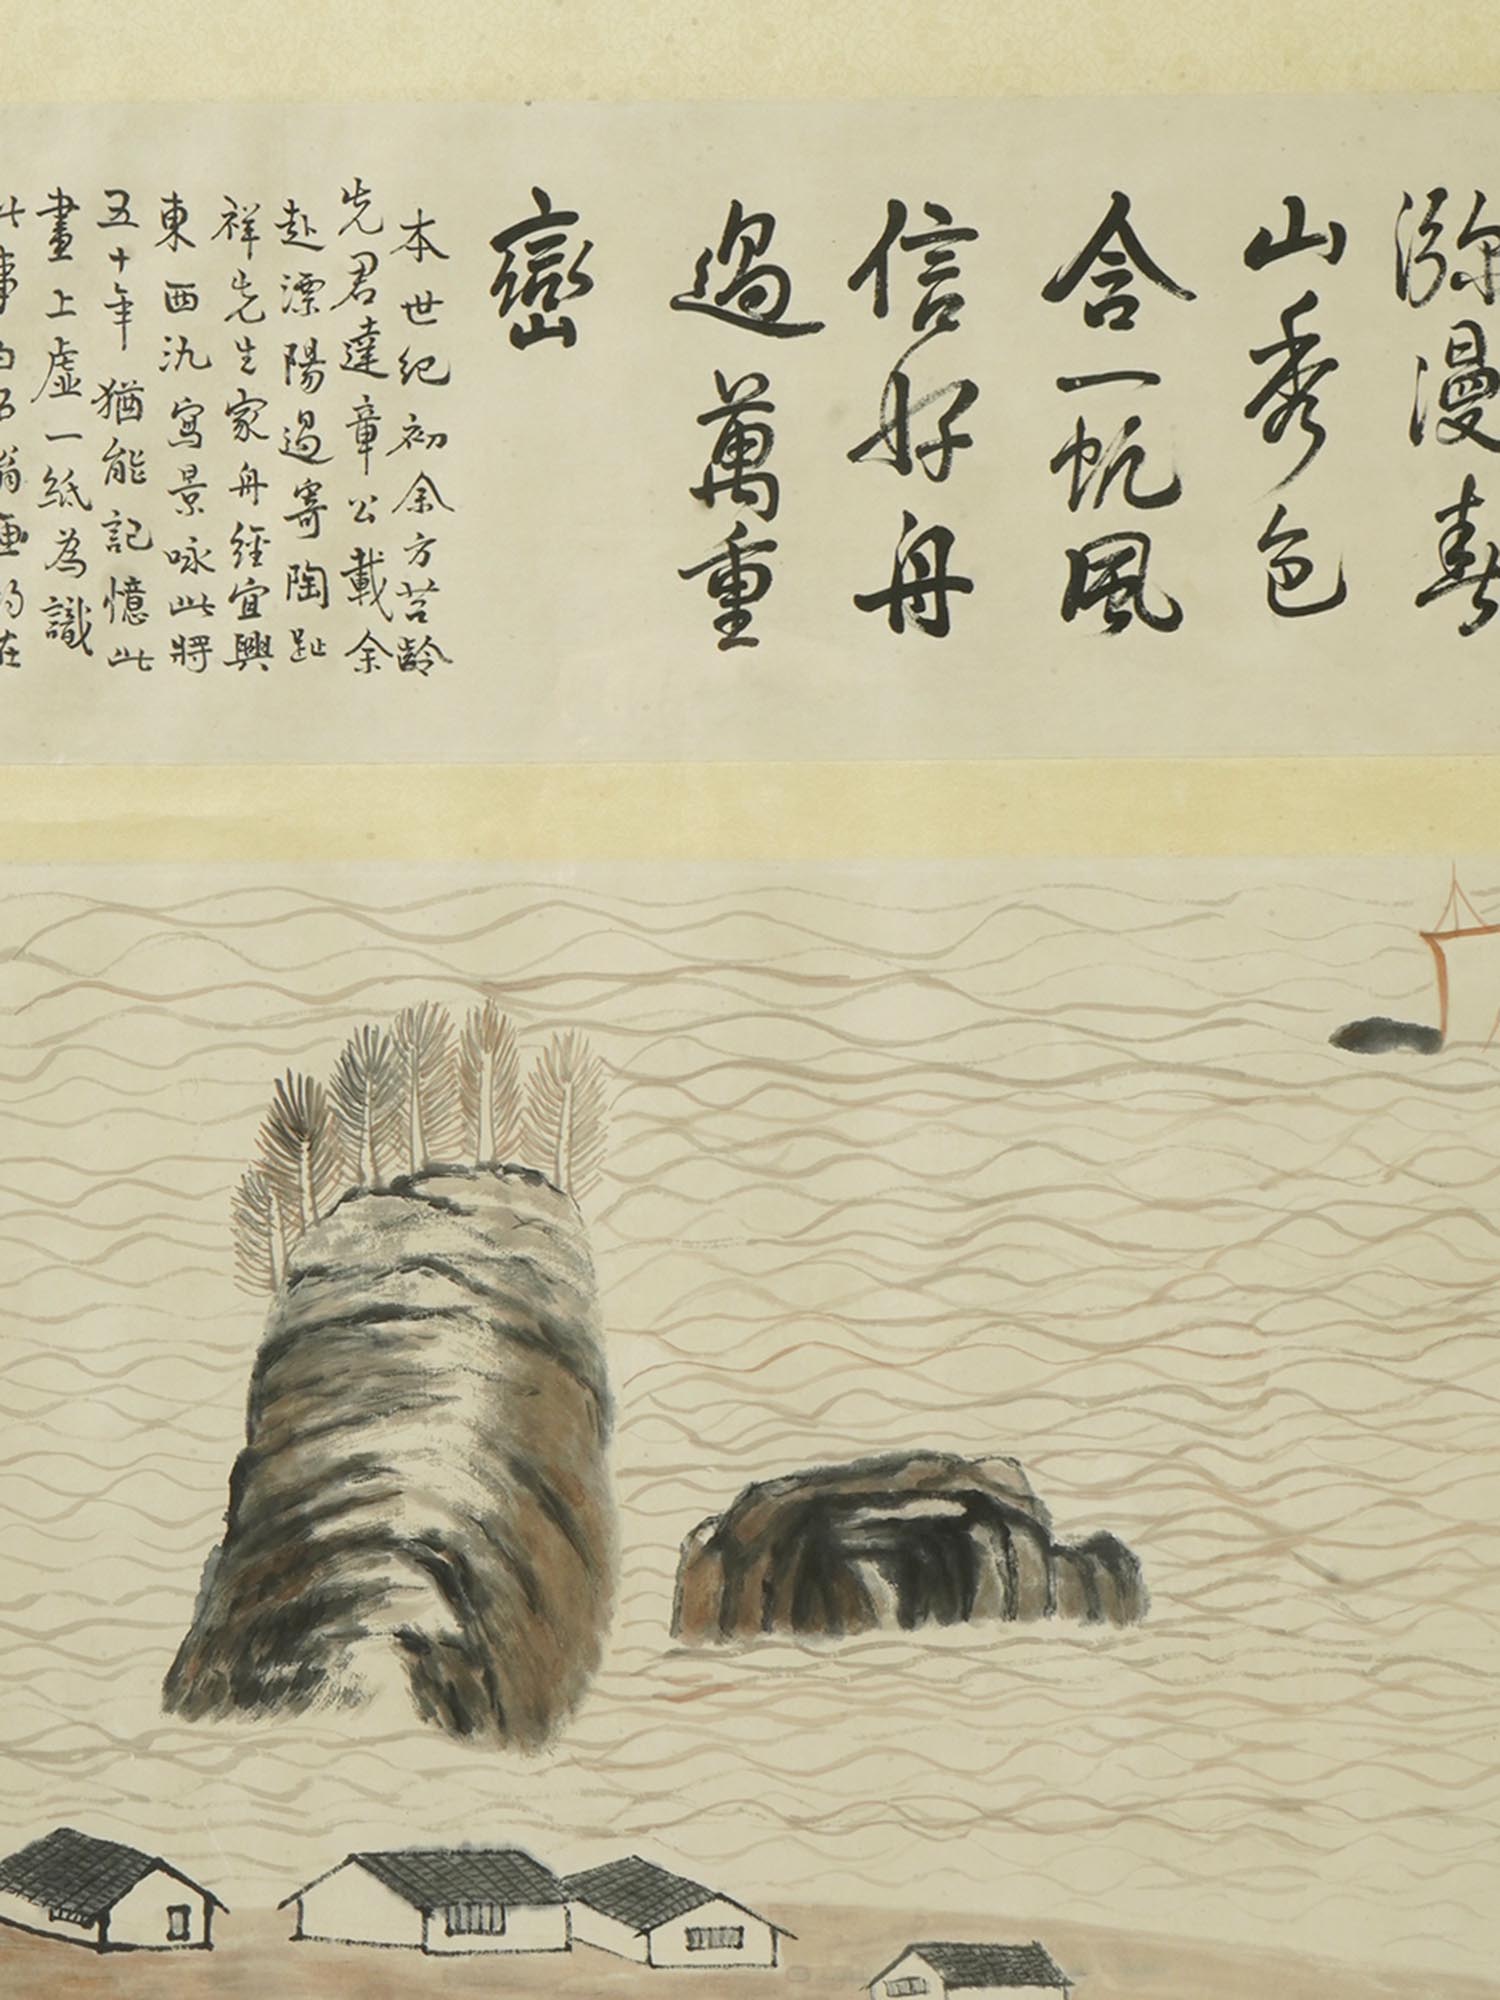 瀰漫春
山秀色
含一帆風
信好舟
過萬重
巒
本世紀初余方苕齡
先君達章公載余
赴溧陽過寄陶趾
祥先生家舟經宜興
東西氿寫景咏此將
五十年猶能記憶此
畫上虛一紙為識